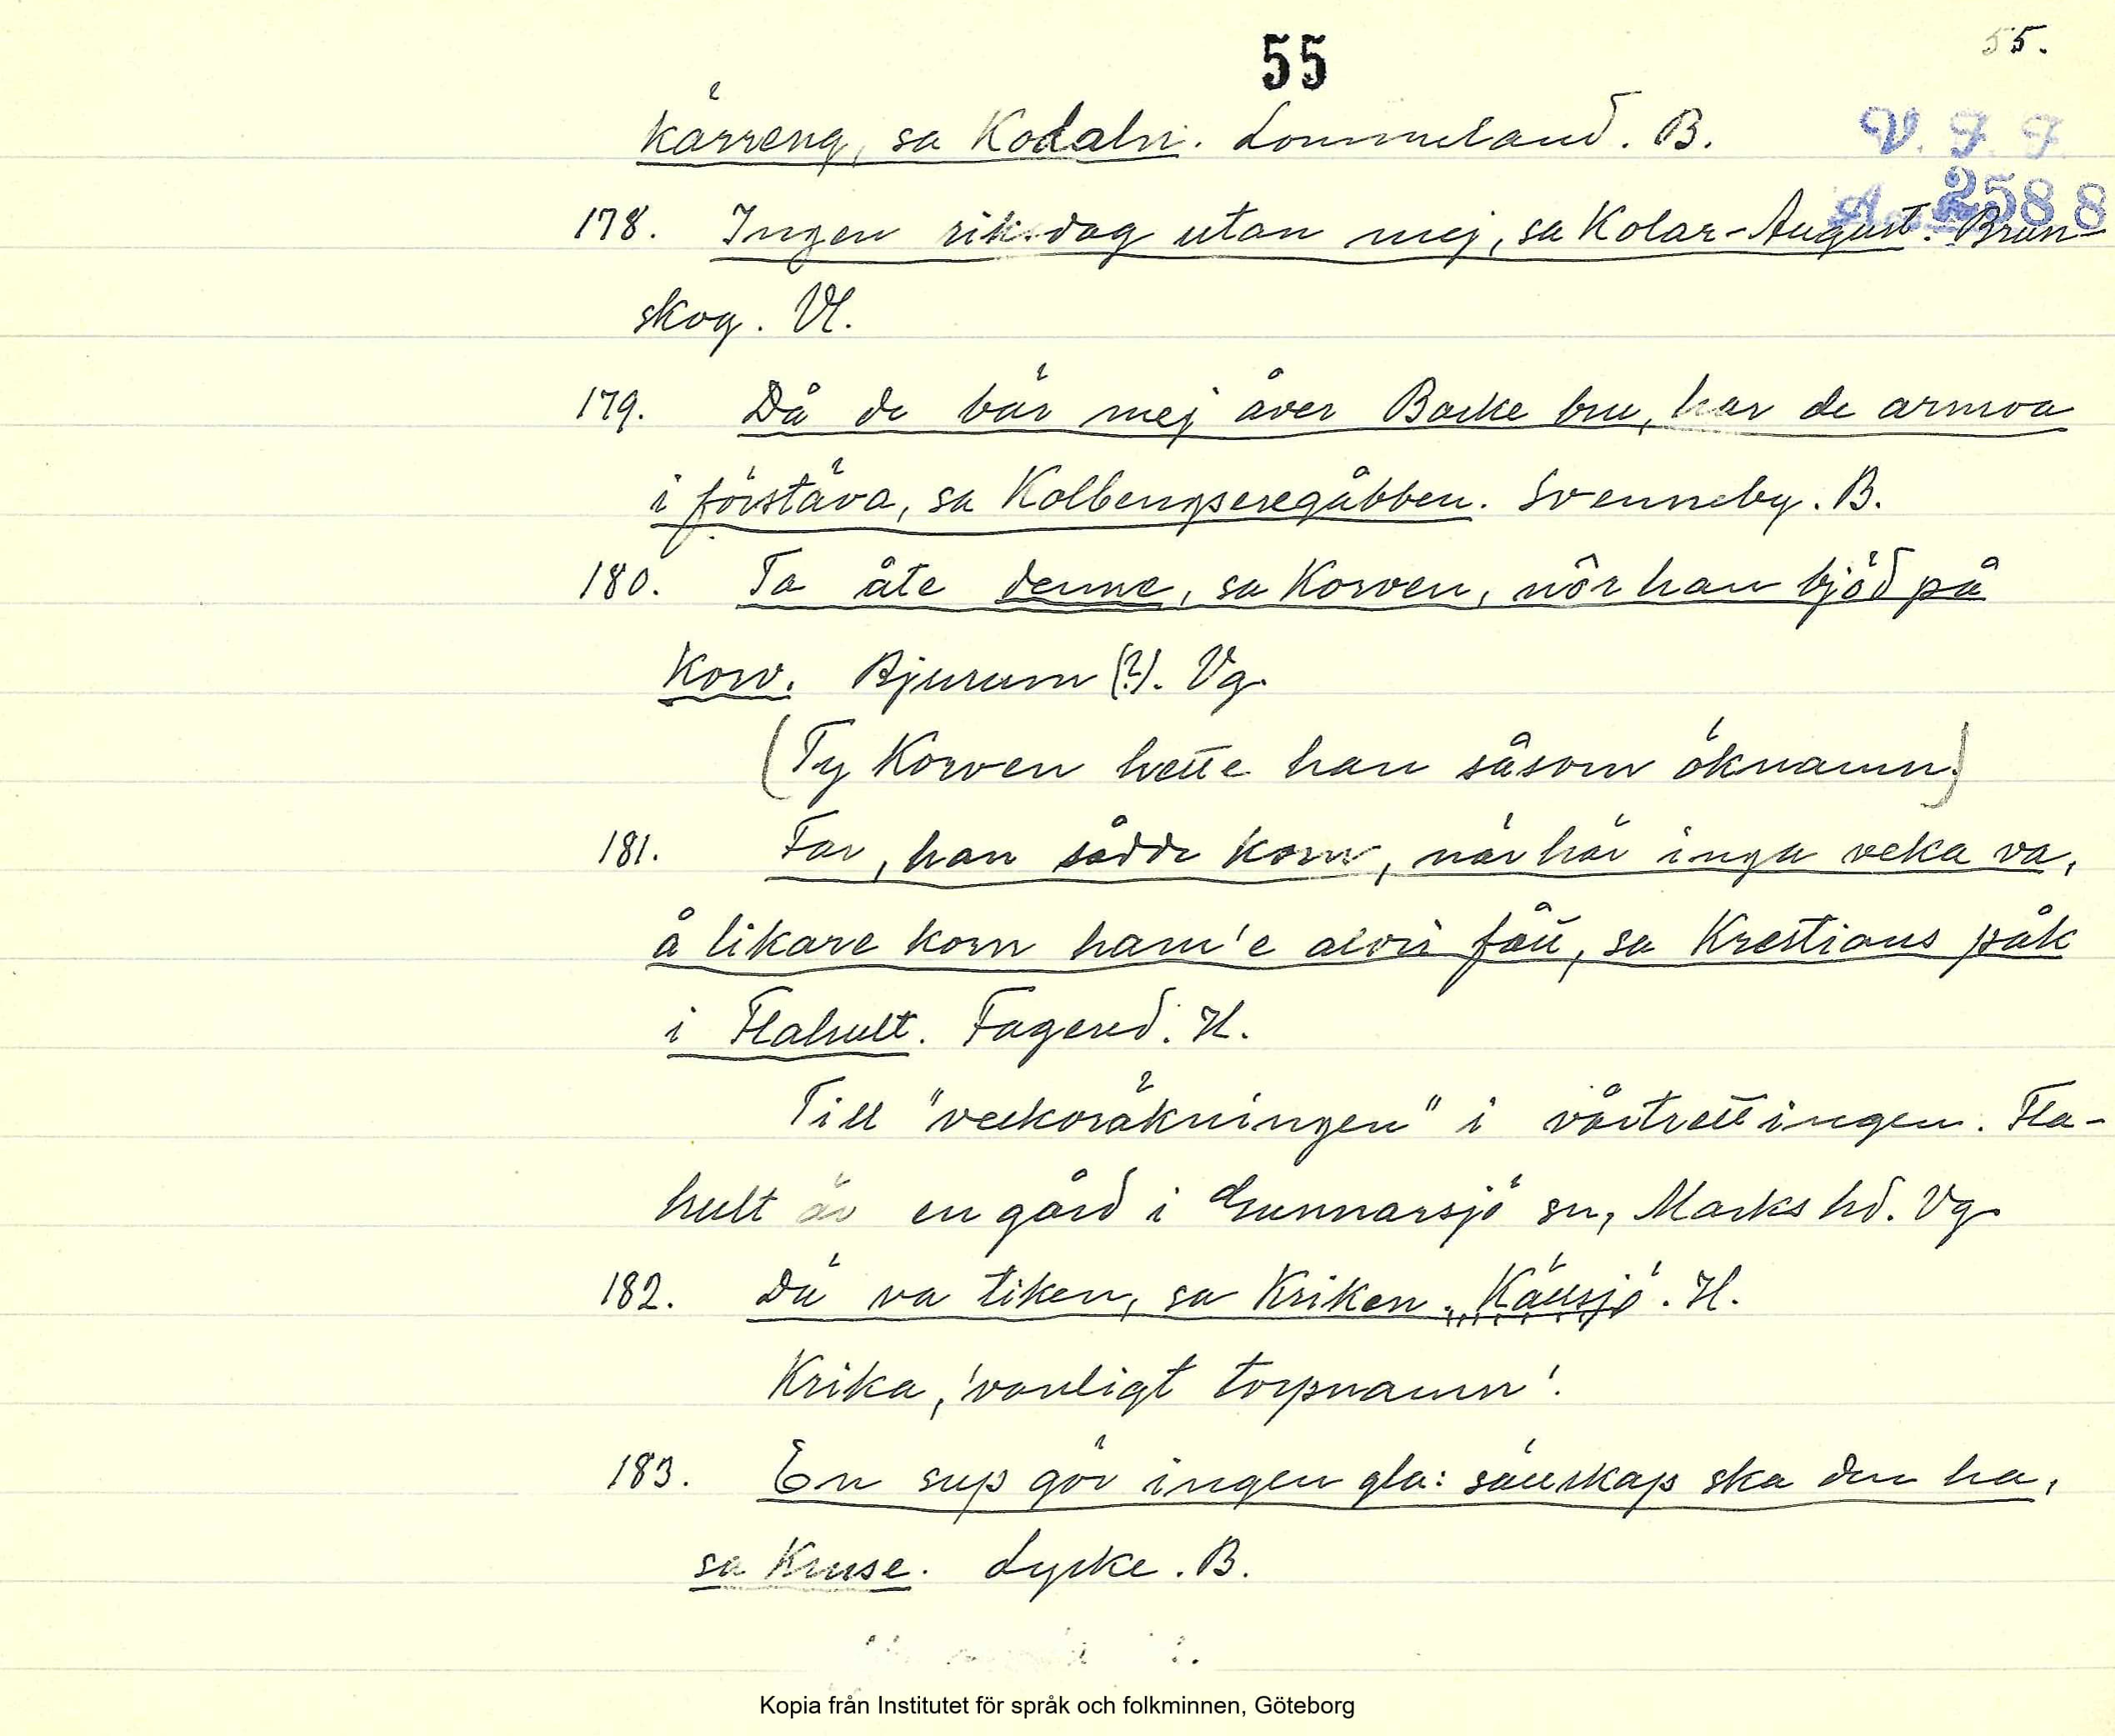 55
55.
kärreng, sa Kodaln. Lommeland. B.
V. F. F.
A 2588
178. Ingen riksdag utan mej, sa Kolar-August. Brun-
skog. Vl.
179. Då de bär mej åver Backe bru, har de armoa
i förstäva, sa Kolbengseregåbben. Svenneby. B.
180. Ta åte denne, sa Korven, när han bjöd på
korv. Bjurum (?). Vg.
(Ty Korven hette han såsom öknamn.)
181. Far, han sådde korn, när här inga veka va,
å likare korn ham'e alvri fått, sa Krestians påk
i Flahult. Fagered. H.
Till "veckoräkningen" i vårtvettingen. Fla-
hult är en gård i Gunnarsjö sn, Marks hd. Vg.
182. Dä va tiken, sa Kriken. Källsjö. H.
Krika, 'vanligt torpnamn'.
183. En sup gör ingen gla: sällskap ska den ha,
sa Kruse. Lycke. B.
Kopia från Institutet för språk och folkminnen, Göteborg